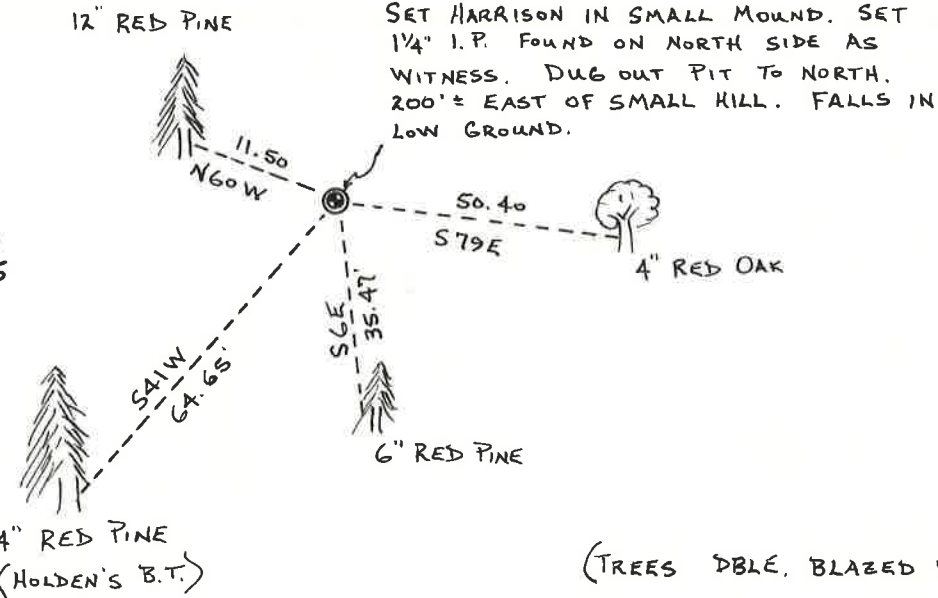 12" RED PINE
SET HARRISON IN SMALL MOUND. SET
1¼" I.P. FOUND ON NORTH SIDE AS
WITNESS. DUG OUT PIT TO NORTH.
200'± EAST OF SMALL HILL. FALLS IN
LOW GROUND.
11.50
N60W
50.40
S79E
4" RED OAK
S6E
35.47'
S41W
64.65'
6" RED PINE
4" RED PINE
(HOLDEN'S B.T.)
(TREES DBLE. BLAZED